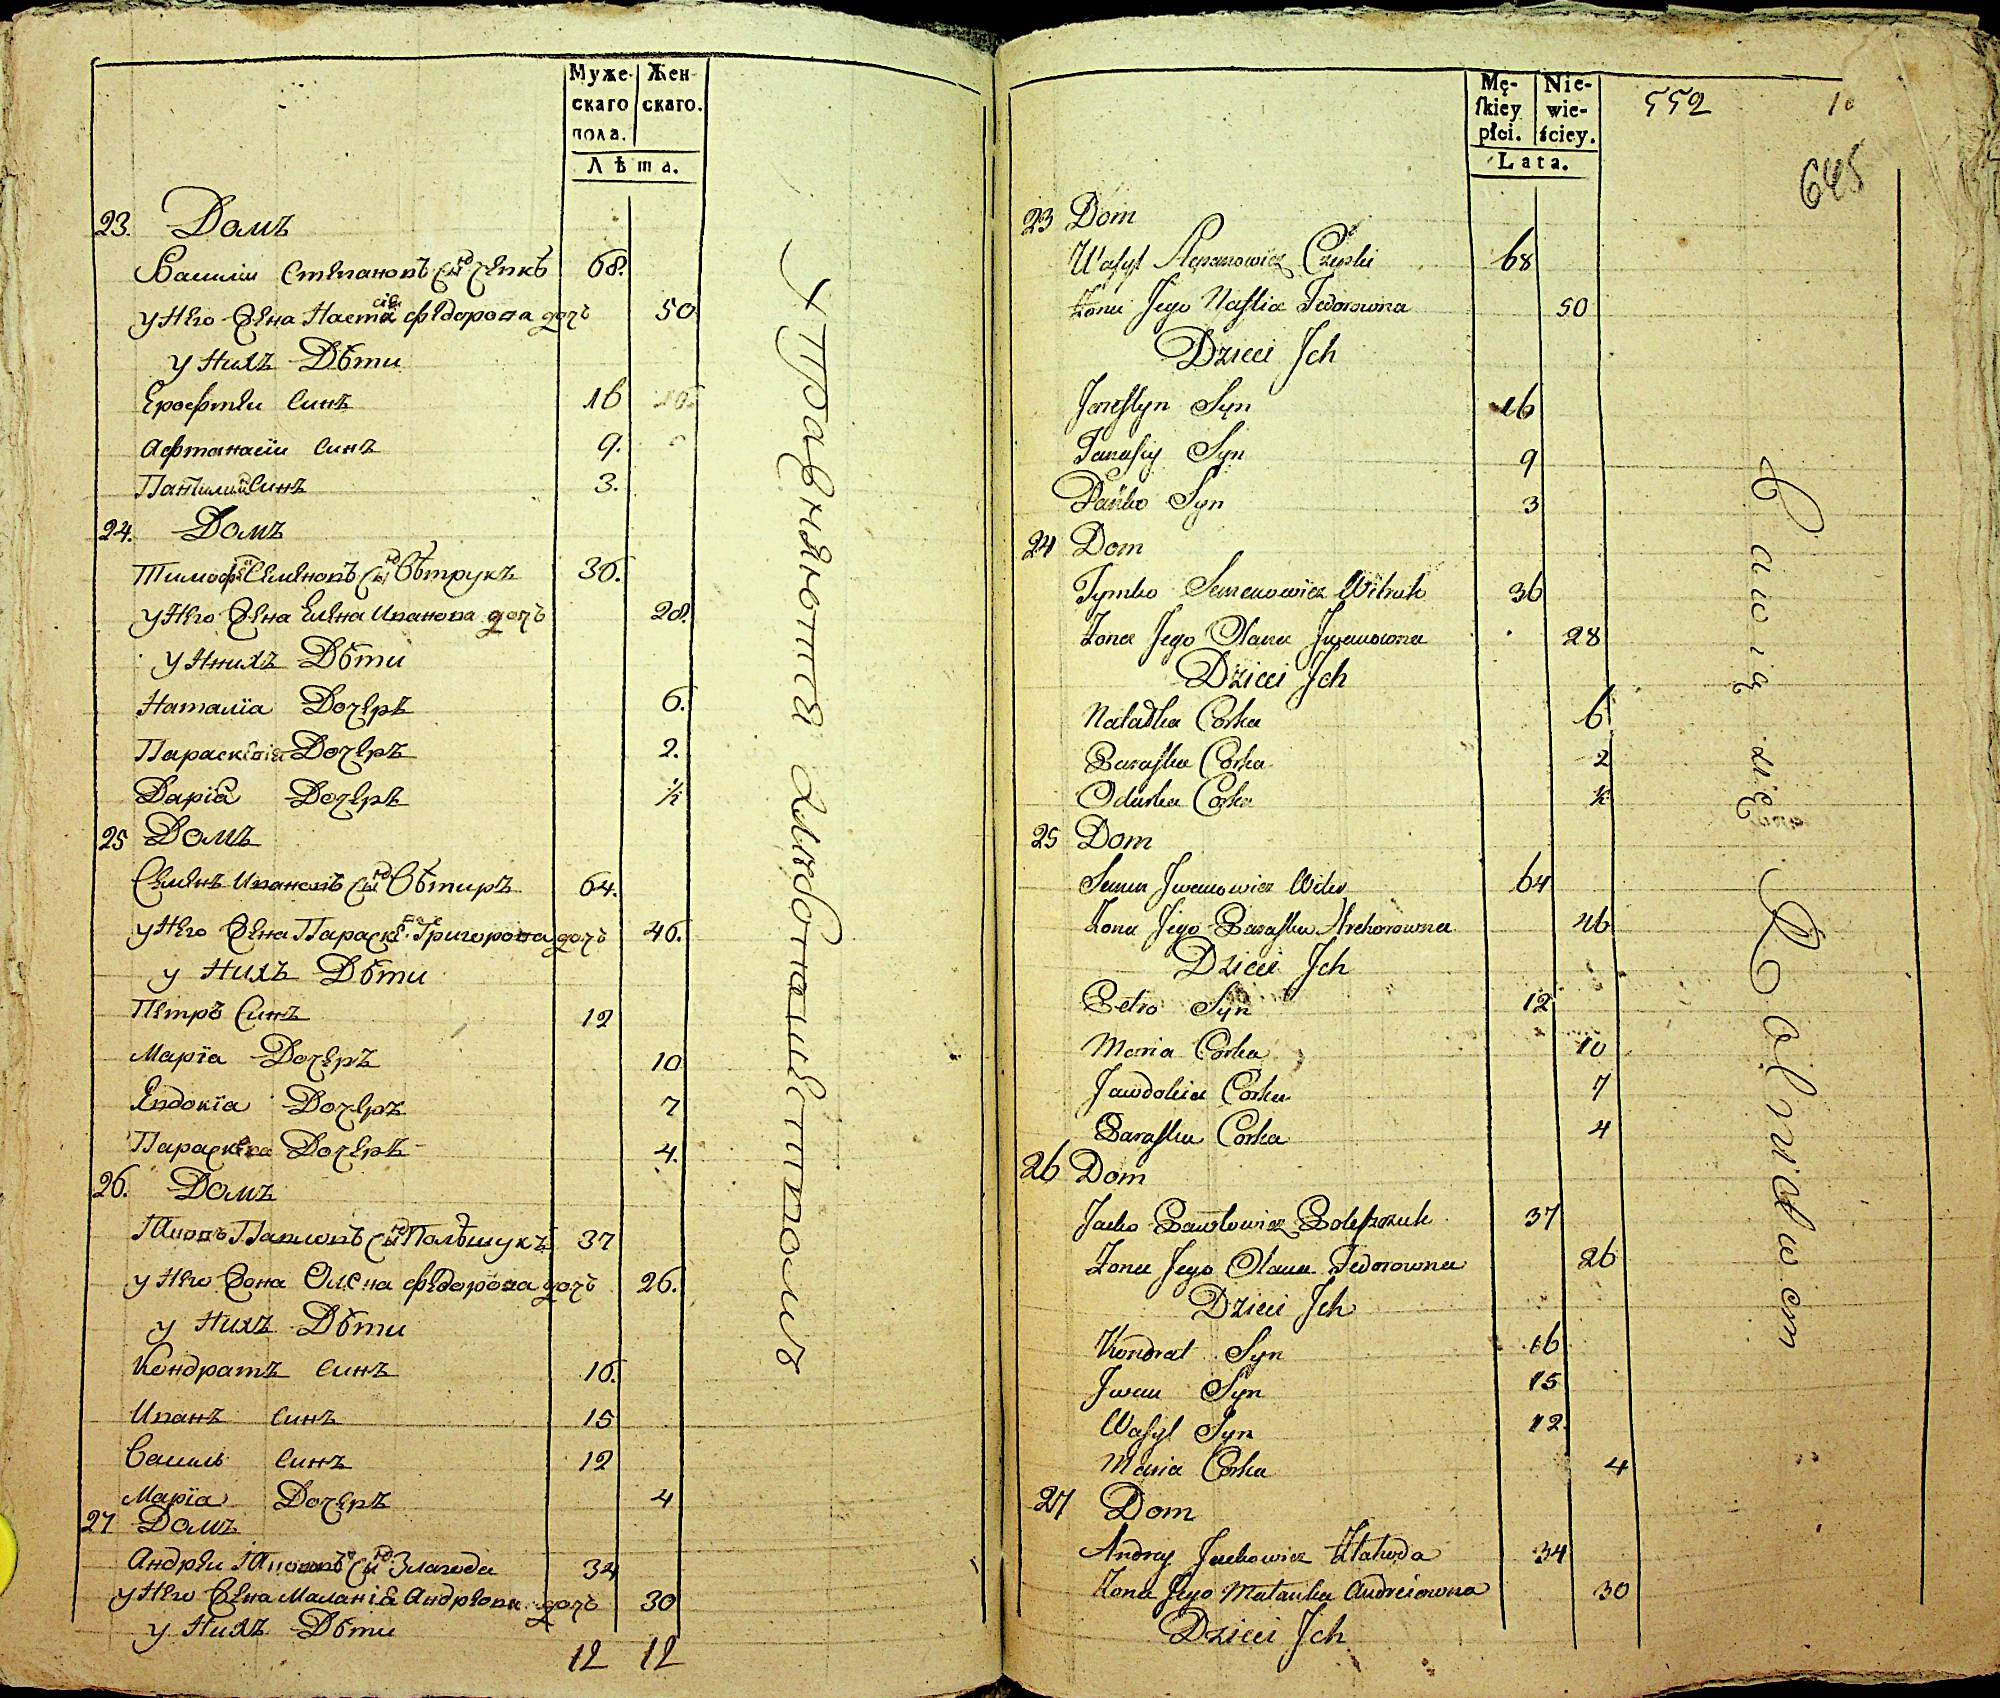 Муже-
скаго
пола.
Жен-
скаго.
Лѣта.
23. Домъ
Василіи Степановъ Сынъ 68.
у Него Жена Настасія Федорова дочъ 50
у Нихъ Дѣти
Ерофтеи Синъ 16
Афтанасіи Синъ 9.
Синъ 3.
24. Домъ
Тимофеи Семеновъ Сынъ Вѣтрукъ 36.
у Него Жена Елена Иванова дочъ 28.
у Нихъ Дѣти
Наталіа Дочеръ 6.
Параскевіа Дочеръ 2.
Даріа Дочеръ ½
25 Домъ
Семенъ Ивановъ Сынъ Вѣтиръ 64.
у Него Жена Параске Григорова дочъ 46.
у Нихъ Дѣти
Петръ Синъ 12
Маріа Дочеръ 10
Евдокіа Дочеръ 7
Параскева Дочеръ 4.
26. Домъ
Павловъ Сынъ Полѣшукъ 37
у Него Жона Олена Федорова дочъ 26.
у Нихъ Дѣти
Кондратъ Синъ 16.
Иванъ Синъ 15
Василь Синъ 12
Маріа Дочеръ 4
27 Домъ
Андреи Сынъ Злагода 34
у Него Жена Маланіа Андреева дочъ 30
у Нихъ Дѣти
12 12
Mę-
ſkiey
płci.
Nie-
wie-
ściey.
Lata.
552
645
23 Dom
Waſyl Stepanowicz 68
Żona Jego Naſtia Fedorowna 50
Dzieci Jch
Syn 16
Panaſiy Syn 9
Pańko Syn 3
24 Dom
Tymko Semenowicz Witruk 36
Żona Jego Olana Jwanowna 28
Dzieci Jch
Natalka Corka 6
Paraſka Corka 2
Odarka Corka ½
25 Dom
Semen Jwanowicz 64
Żona Jego Paraſka Hrehorowna 46
Dzieci Jch
Petro Syn 12
Maria Corka 10
Jawdokia Corka 7
Paraſka Corka 4
26 Dom
Jacko Pawłowicz Poleſzczuk 37
Żona Jego Olana Fedorowna 26
Dzieci Jch
Kondrat Syn 16
Jwan Syn 15
Waſyl Syn 12
Maria Corka 4
27 Dom
Andrey Jackowicz Złahoda 34
Żona Jego Małanka Andreiowna 30
Dzieci Jch